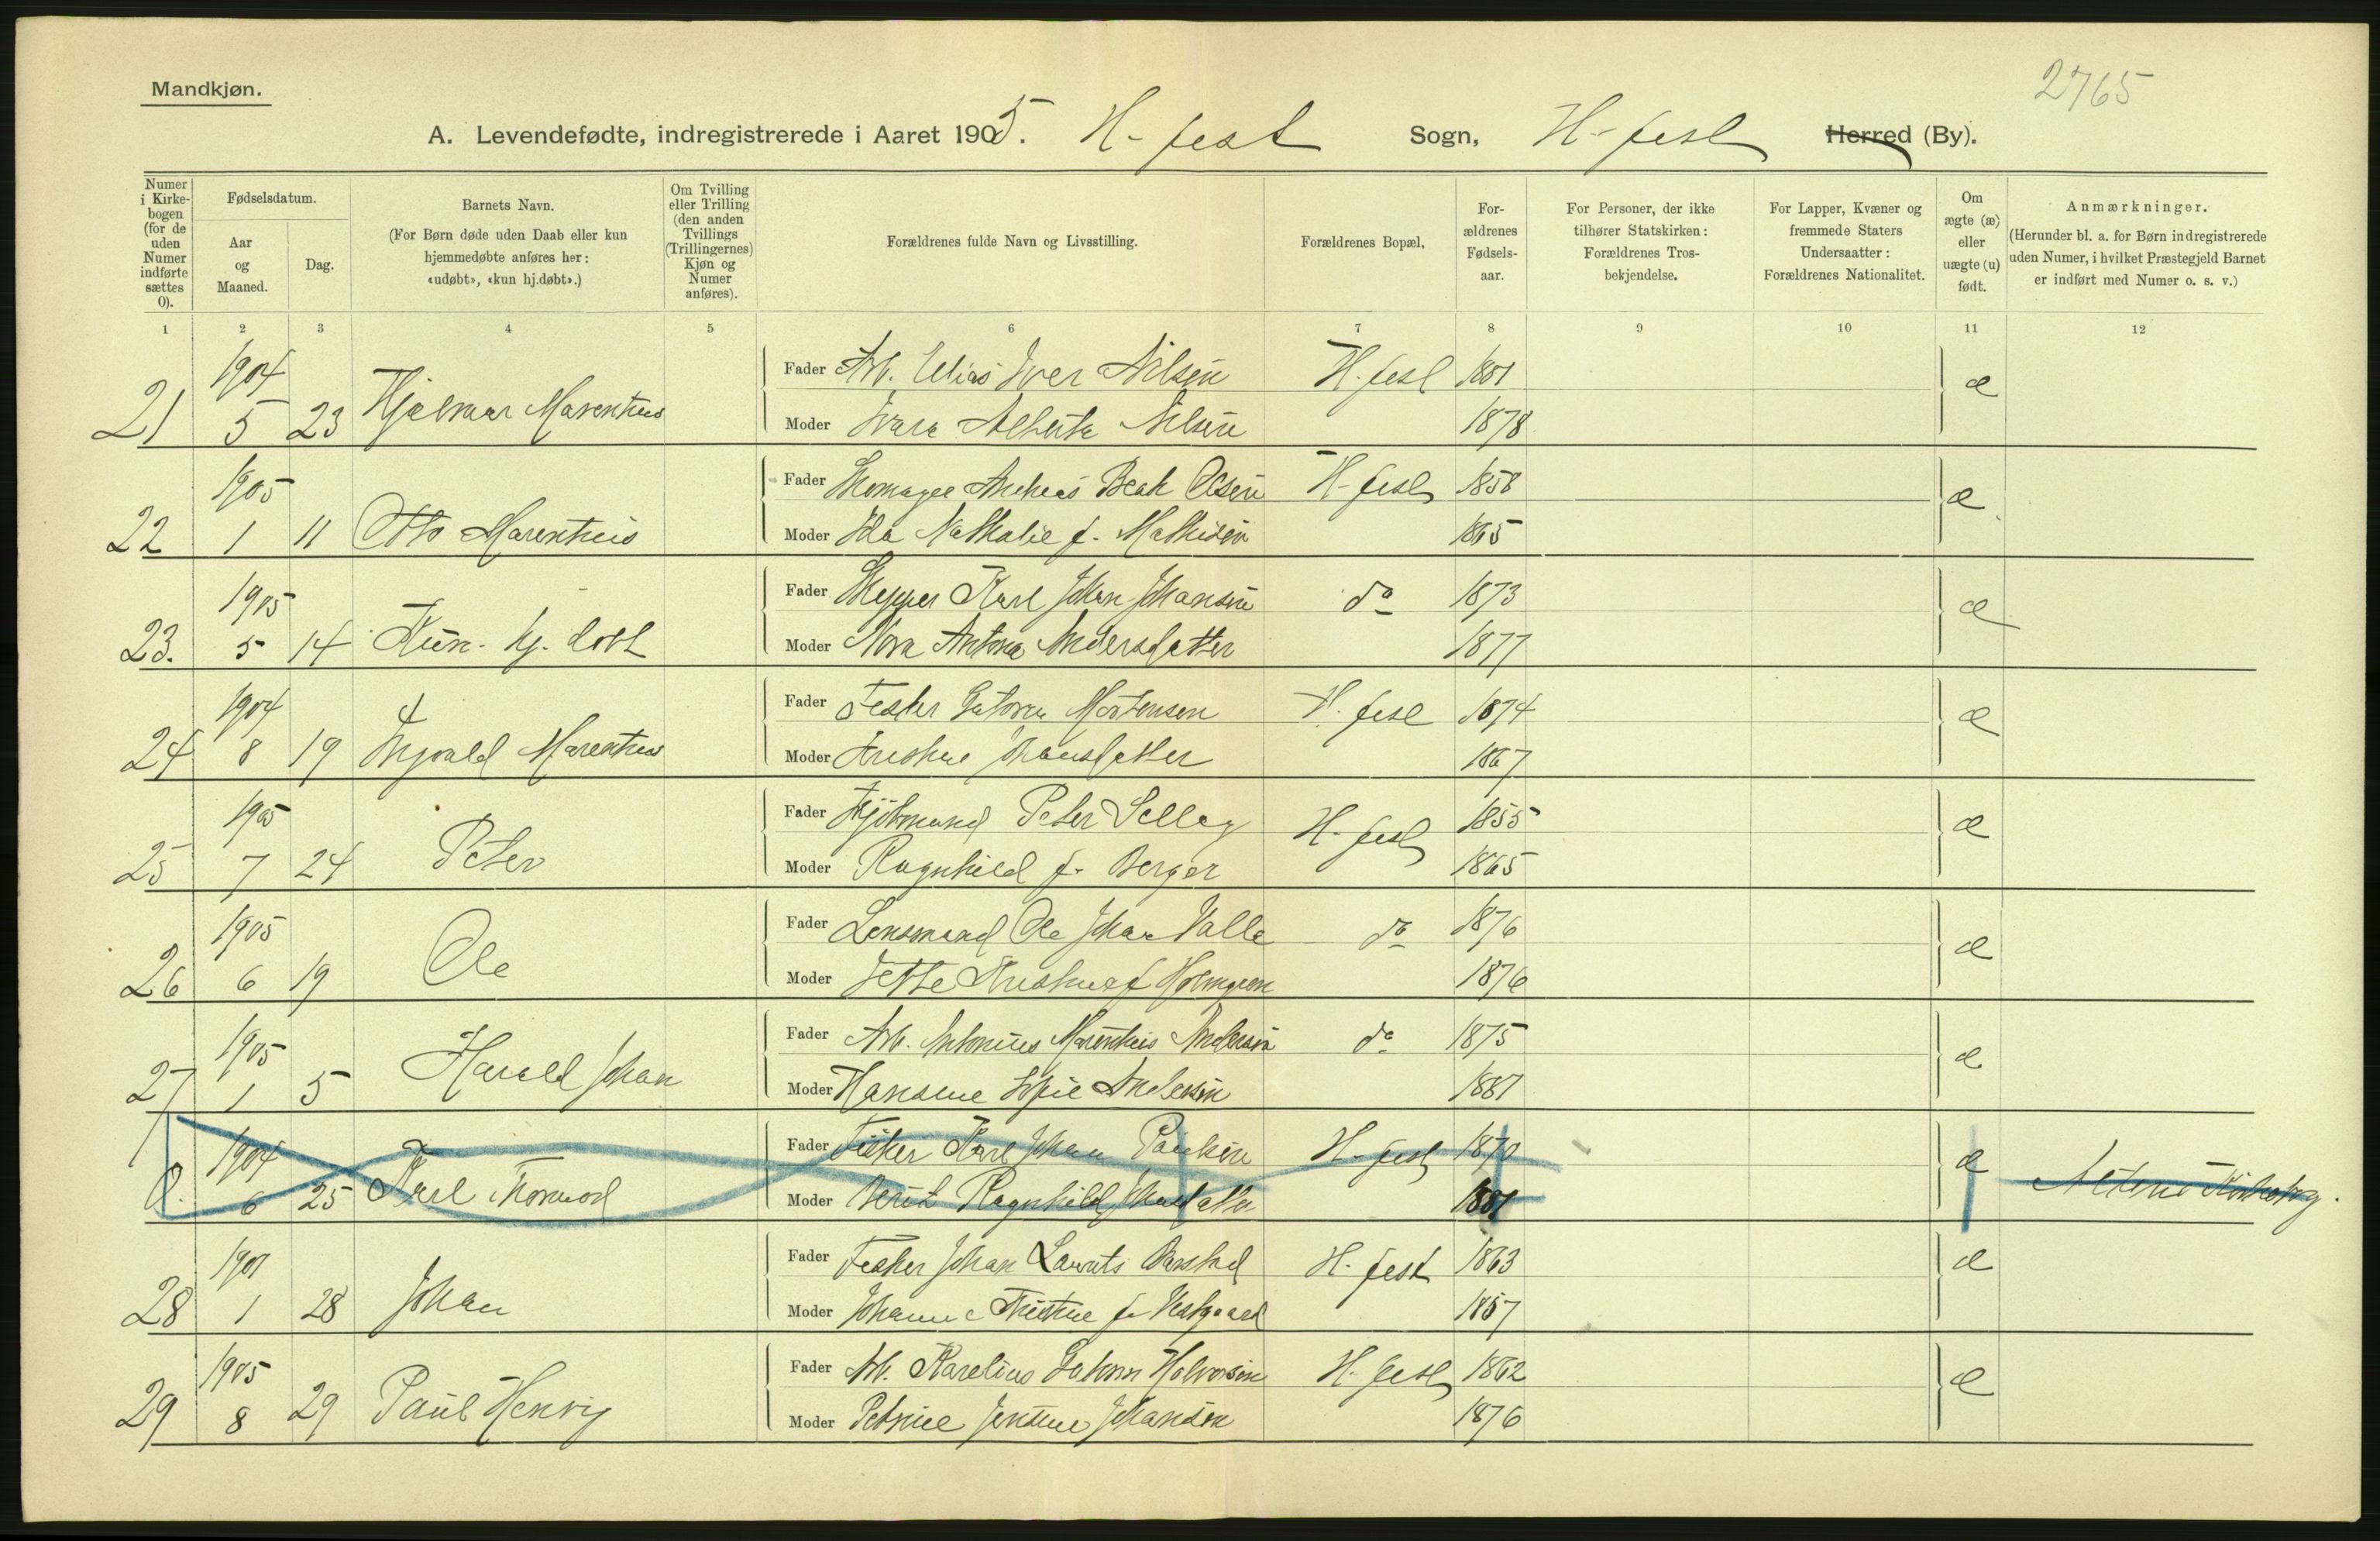 2765
Mandkjøn.
A. Levendefødte, indregistrerede i Aaret 1905. H-fest Sogn, H-fest Herred (By).
Numer i Kirke-bogen (for de uden Numer indførte sættes 0).
Fødselsdatum.
Aar og Maaned.
Dag.
Barnets Navn.
(For Børn døde uden Daab eller kun hjemmedøbte anføres her: «udøbt», «kun hj.døbt».)
Om Tvilling eller Trilling (den anden Tvillings (Trillingernes) Kjøn og Numer anføres).
Forældrenes fulde Navn og Livsstilling.
Forældrenes Bopæl,
For-ældrenes Fødsels-aar.
For Personer, der ikke tilhører Statskirken: Forældrenes Tros-bekjendelse.
For Lapper, Kvæner og fremmede Staters Undersaatter: Forældrenes Nationalitet.
Om ægte (æ) eller uægte (u) født.
Anmærkninger.
(Herunder bl. a. for Børn indregistrerede uden Numer, i hvilket Præstegjeld Barnet er indført med Numer o. s. v.)
1 2 3 4 5 6 7 8 9 10 11 12
21 1904 5 23 Hjalmar Marentius Fader Arb. Elias Iver Nilsen H. fest 1881 æ
Moder Ivara Alberta Nilsen 1878
22 1905 1 11 Otto Marentius Fader Andreas Beak Olsen H-fest 1858 æ
Moder Ida Nathalie f. Mathisen 1865
23. 1905 5 14 Kun hj. døbt Fader Skipper Karl Johan Johansen do 1873 æ
Moder Nora Antona Andersdatter 1877
24 1904 8 19 Marentius Fader Fisker Mortensen H. fest 1874 æ
Moder Kristine Hansdatter 1867
25 1905 7 24 Peter Fader Kjøbmand Peter Selleg H. fest 1855 æ
Moder Ragnhild f. Berger 1865
26 1905 6 19 Ole Fader Lensmand Ole Johan Valle do 1876 æ
Moder Jette Kristine f Holmgren 1876
27 1905 1 5 Harald Johan Fader Arb. Antonius Marentius Andersen do 1875 æ
Moder Hansine Sofie Andersen 1867
0. 1904 6 25 Karl Thorvod Fader Fisker Karl Johan Paulsen H-fest 1870 æ
Moder Berit Ragnhild Johnsdatter 1881 Altens Kirkebog.
28 1901 1 28 Johan Fader Fisker Johan Laurits Barstad H. fest 1863 æ
Moder Johanne Kristine f. Vestgaard 1857
29 1905 8 29 Paul Henry Fader Arb. Karelius Johan Halvorsen H. fest 1862 æ
Moder Petrine Jensine Johansen 1876